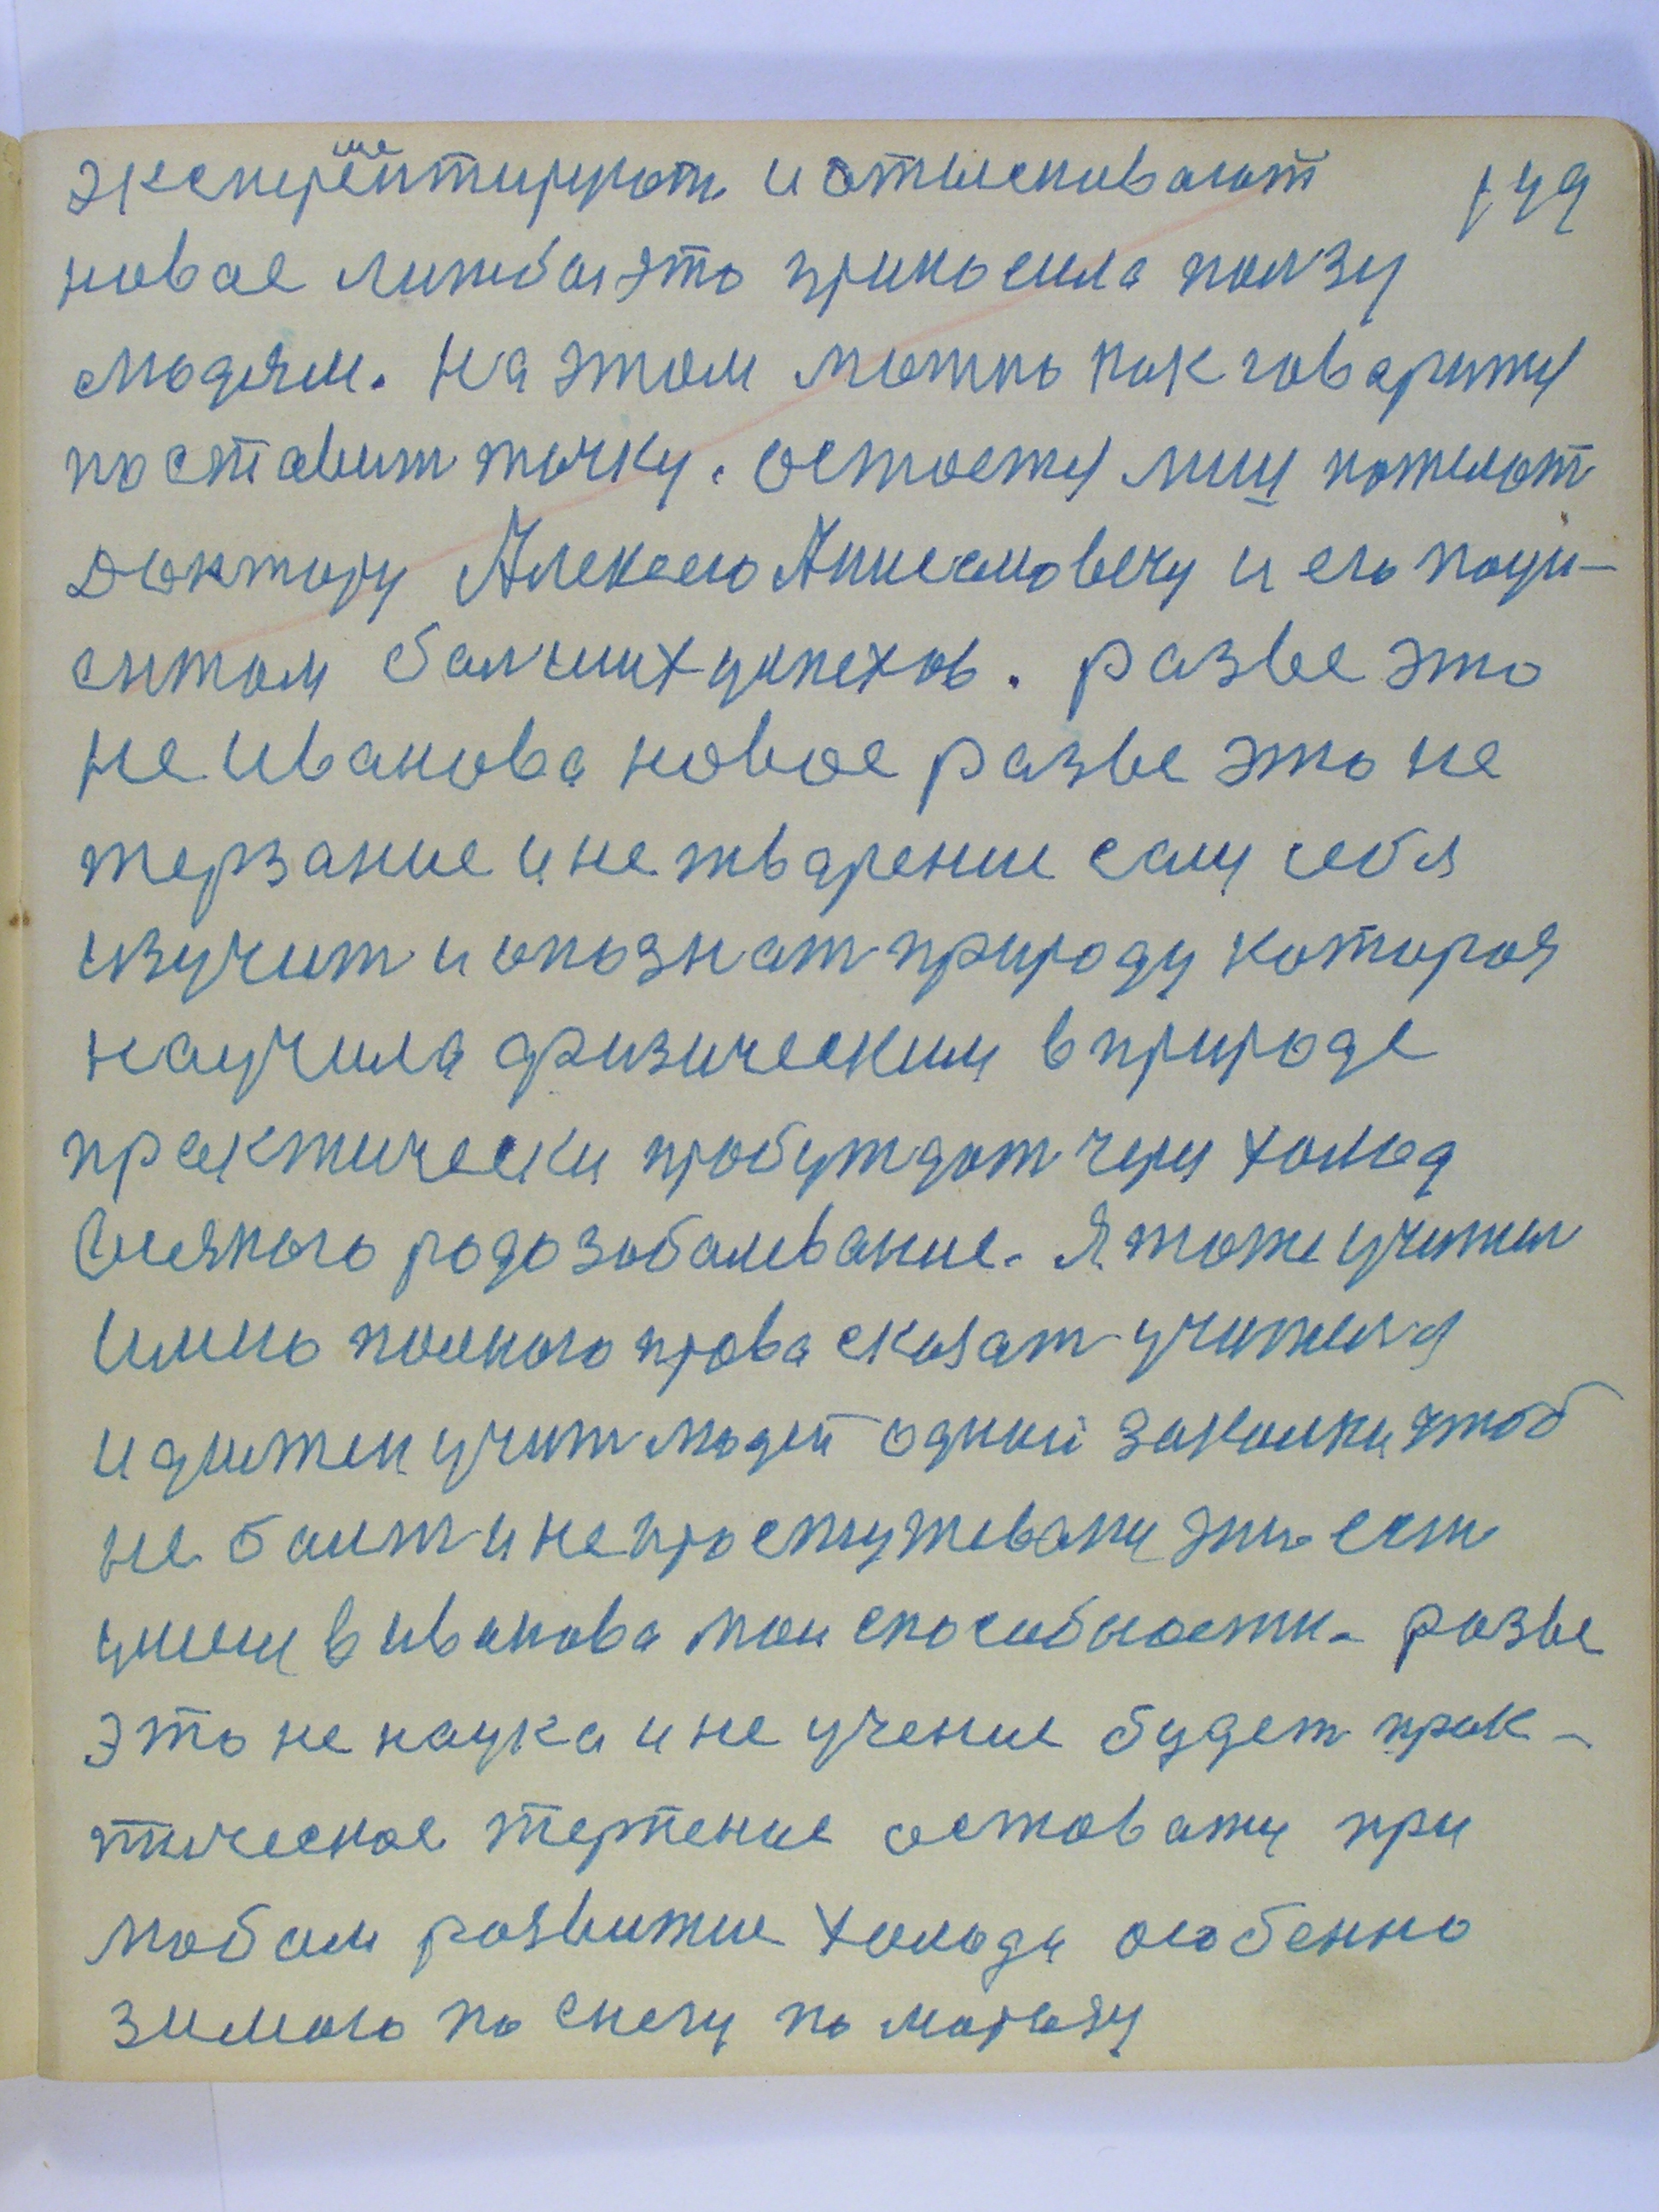 149
эксперементируют и отыскивают
новае лижбы это приносила ползу
людям. На этом можно как говаритца
поставит точку. Остаетца лиш пожелат
Доктору Алексею Анисемовечу и его паци-
ентом балших успехов. разве это
не Иванова новое разве это не
терзание и не тварение саму себя
изучит и опознат природу которая
научила физическим в природе
практически пробуждат через холад
Всякого рода заболевание. Я тоже учител
Имею полного права сказат учителя
и должен учит людей одной закалки чтоб
не болет и не простуживатца это ест
у мене Иванова мои способности. разве
Это не наука и не учение будет прак-
тическое терпение оставатца при
любом развитие холода особенно
зимою по снегу по морозу